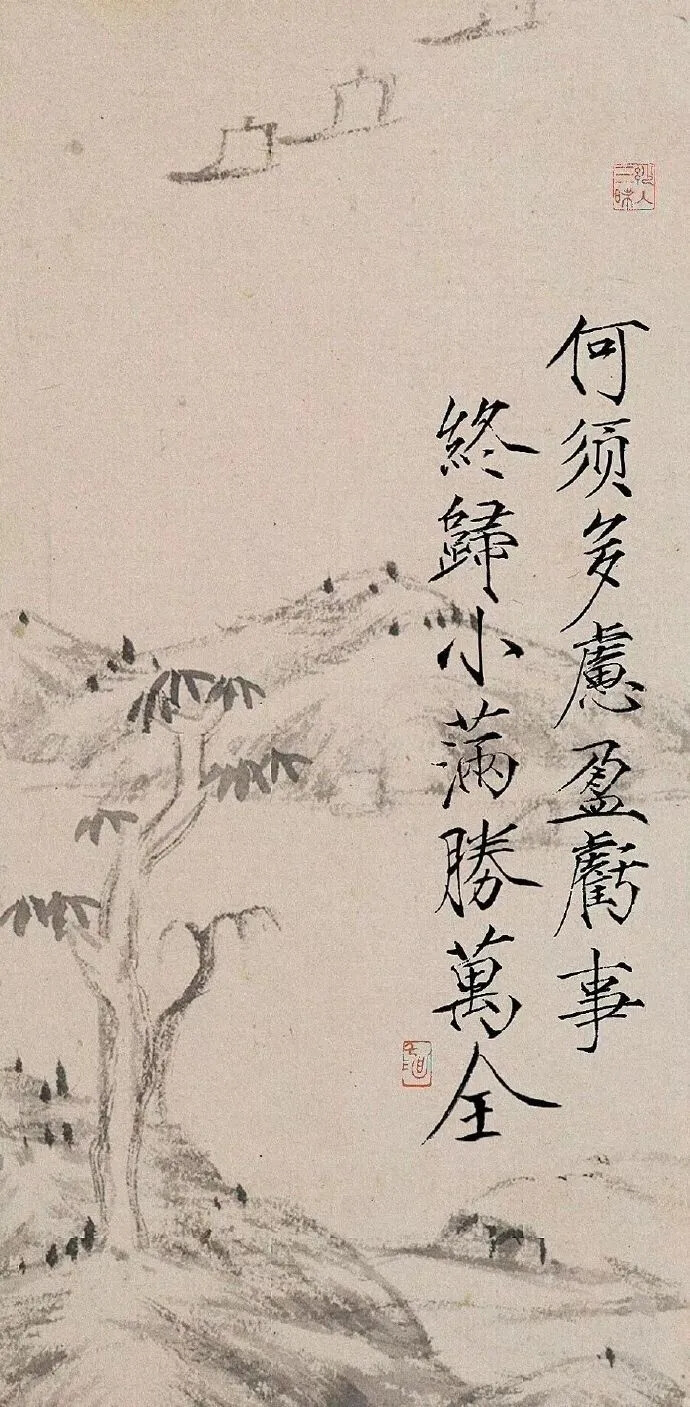 何须多慮盈虧事
終歸小滿勝萬全